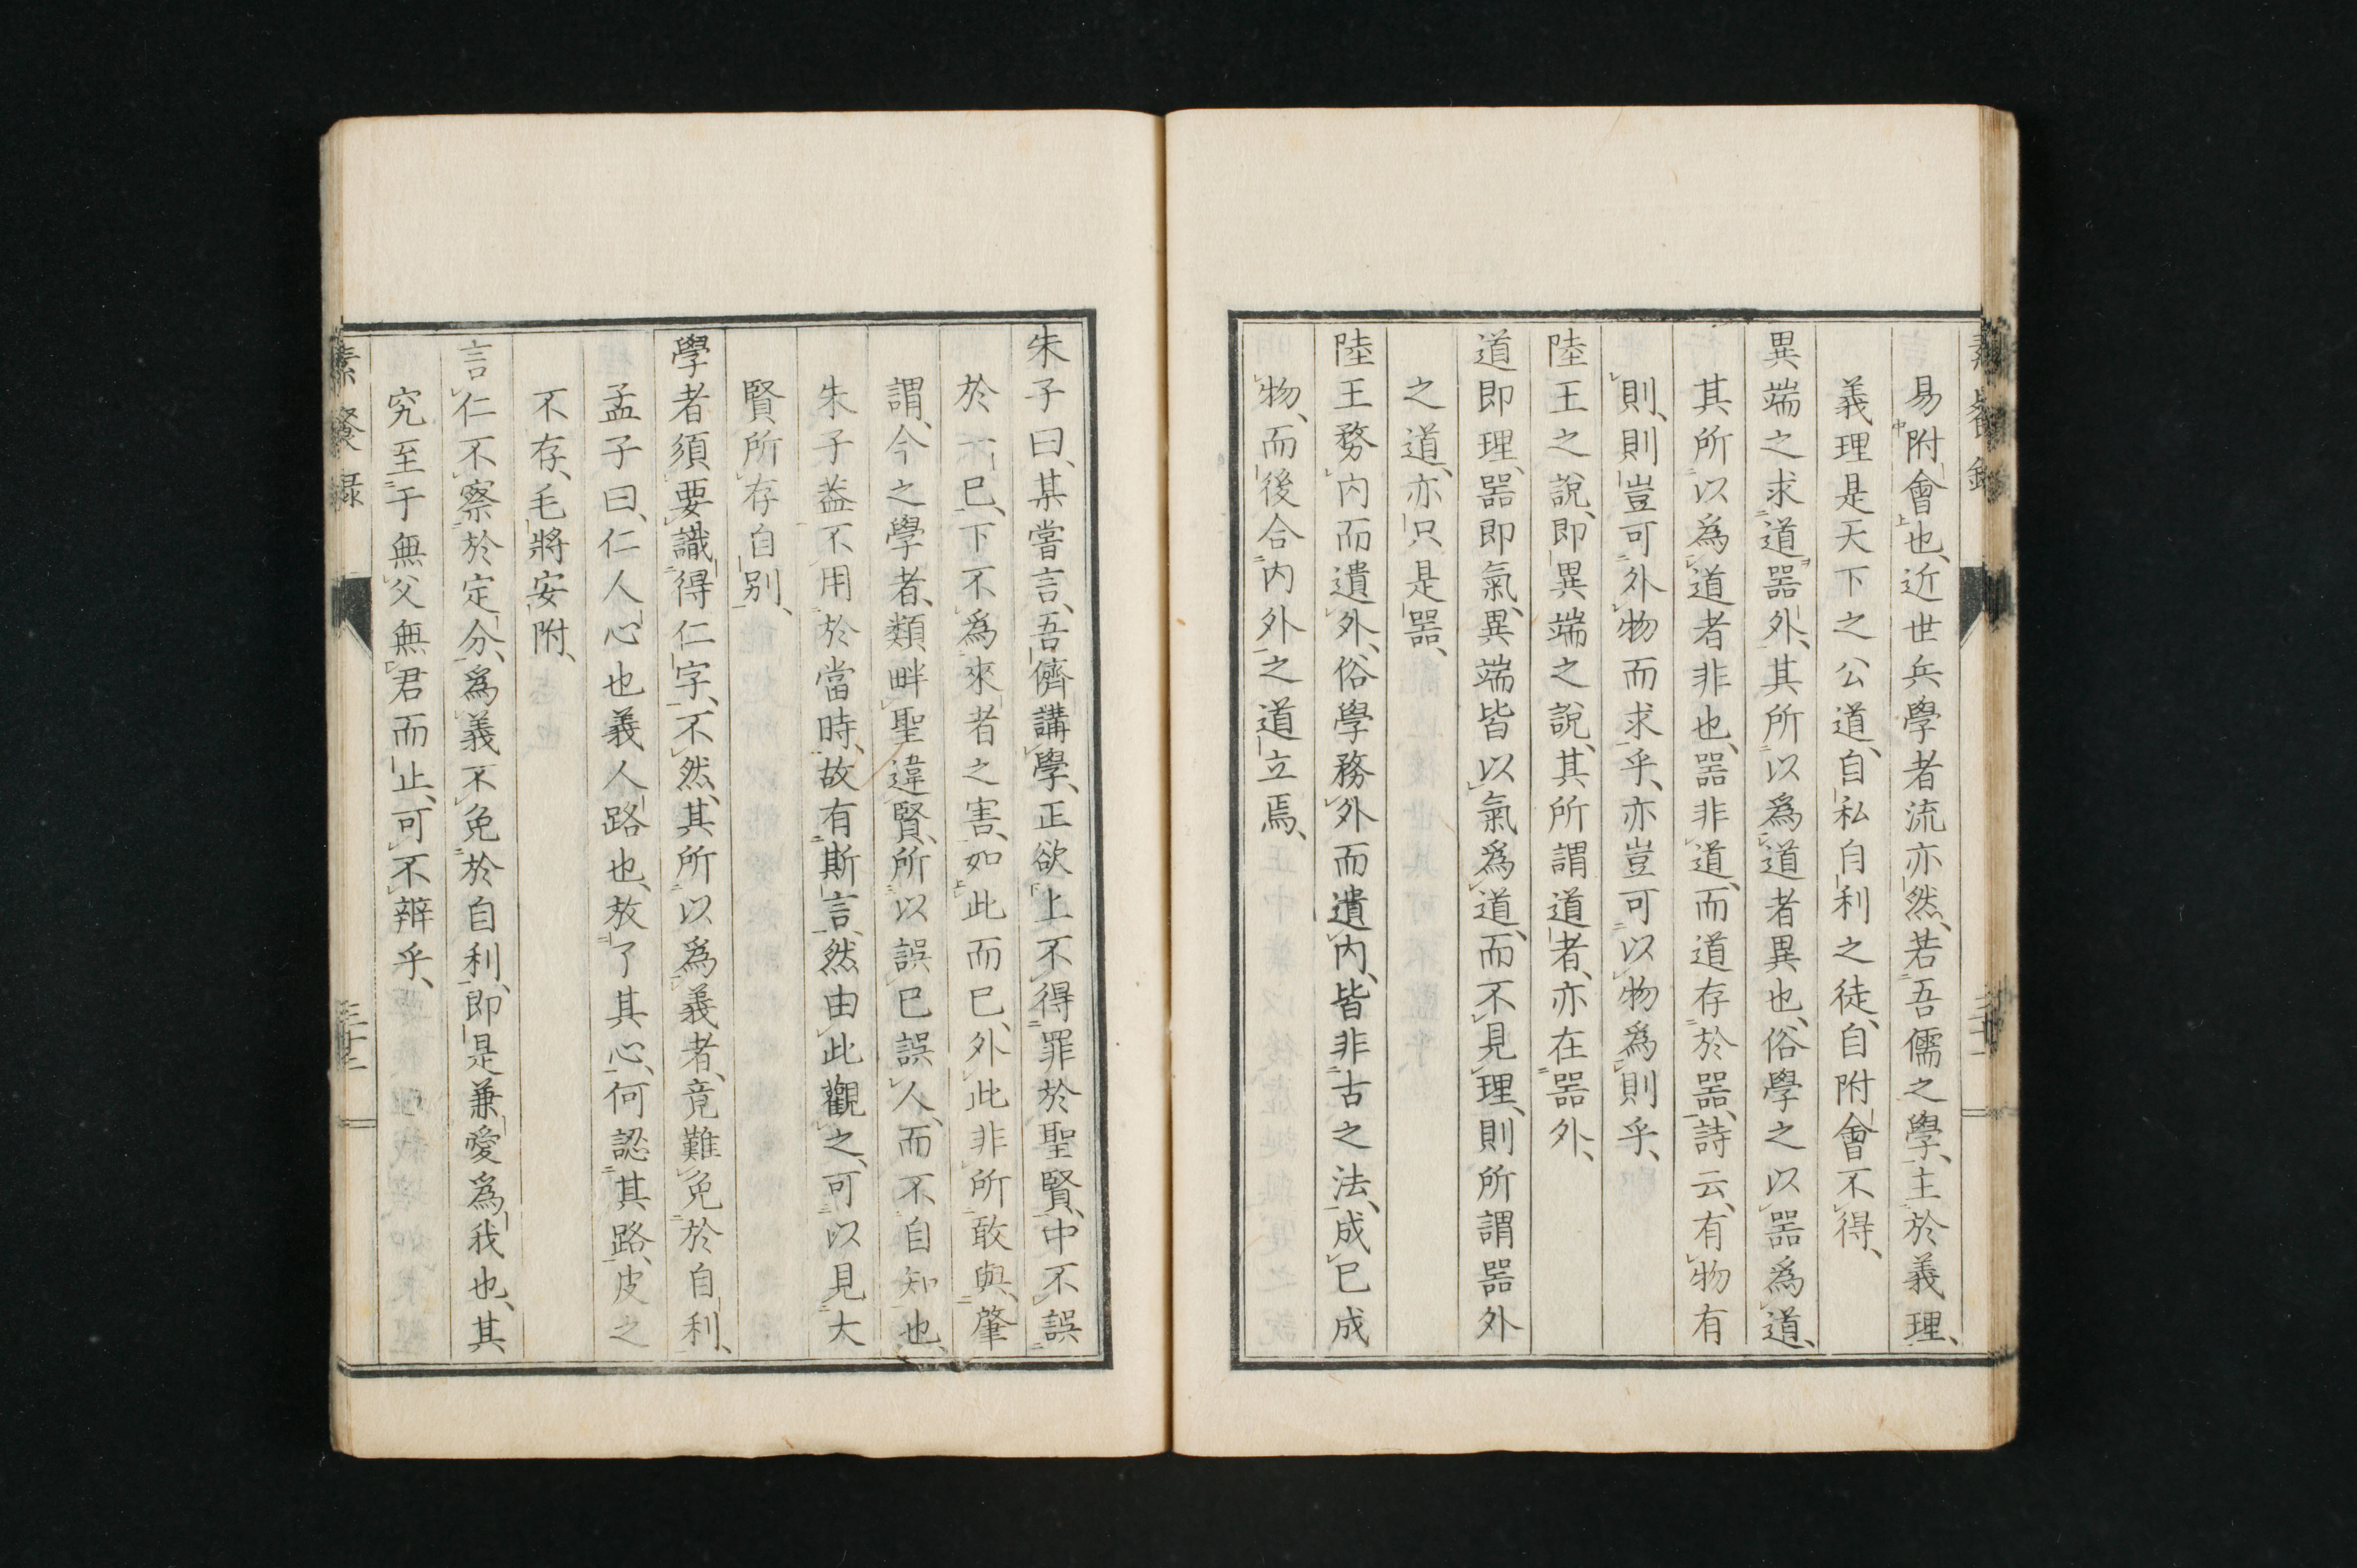 易附會也、近世兵學者流亦然、若吾儒之學、主於義理、
義理是天下之公道、自私自利之徒、自附會不得、
異端之求道噐外、其所以爲道者異也、俗學之以噐爲道、
其所以爲道者非也、噐非道、而道存於噐、詩云、有物有
則、則豈可外物而求乎、亦豈可以物爲則乎、
陸王之說、即異端之說、其所謂道者、亦在噐外、
道即理、噐即氣、異端皆以氣爲道、而不見理、則所謂噐外
之道、亦只是噐、
陸王務内而遺外、俗學務外而遺内、皆非古之法、成已成
物、而後合内外之道立焉、
朱子曰、某嘗言、吾儕講學、正欲上不得罪於聖賢、中不誤
於一已、下不爲來者之害、如此而已、外此非所敢與、肇
謂、今之學者、類畔聖違賢、所以誤已誤人、而不自知也、
朱子葢不用於當時、故有斯言、然由此觀之、可以見大
賢所存自别、
學者須要識得仁字、不然、其所以爲義者、竟難免於自利、
孟子曰、仁人心也義人路也、放了其心、何認其路、皮之
不存、毛將安附、
言仁不察於定分、爲義不免於自利、即是兼愛爲我也、其
究至于無父無君而止、可不辨乎、
三十二